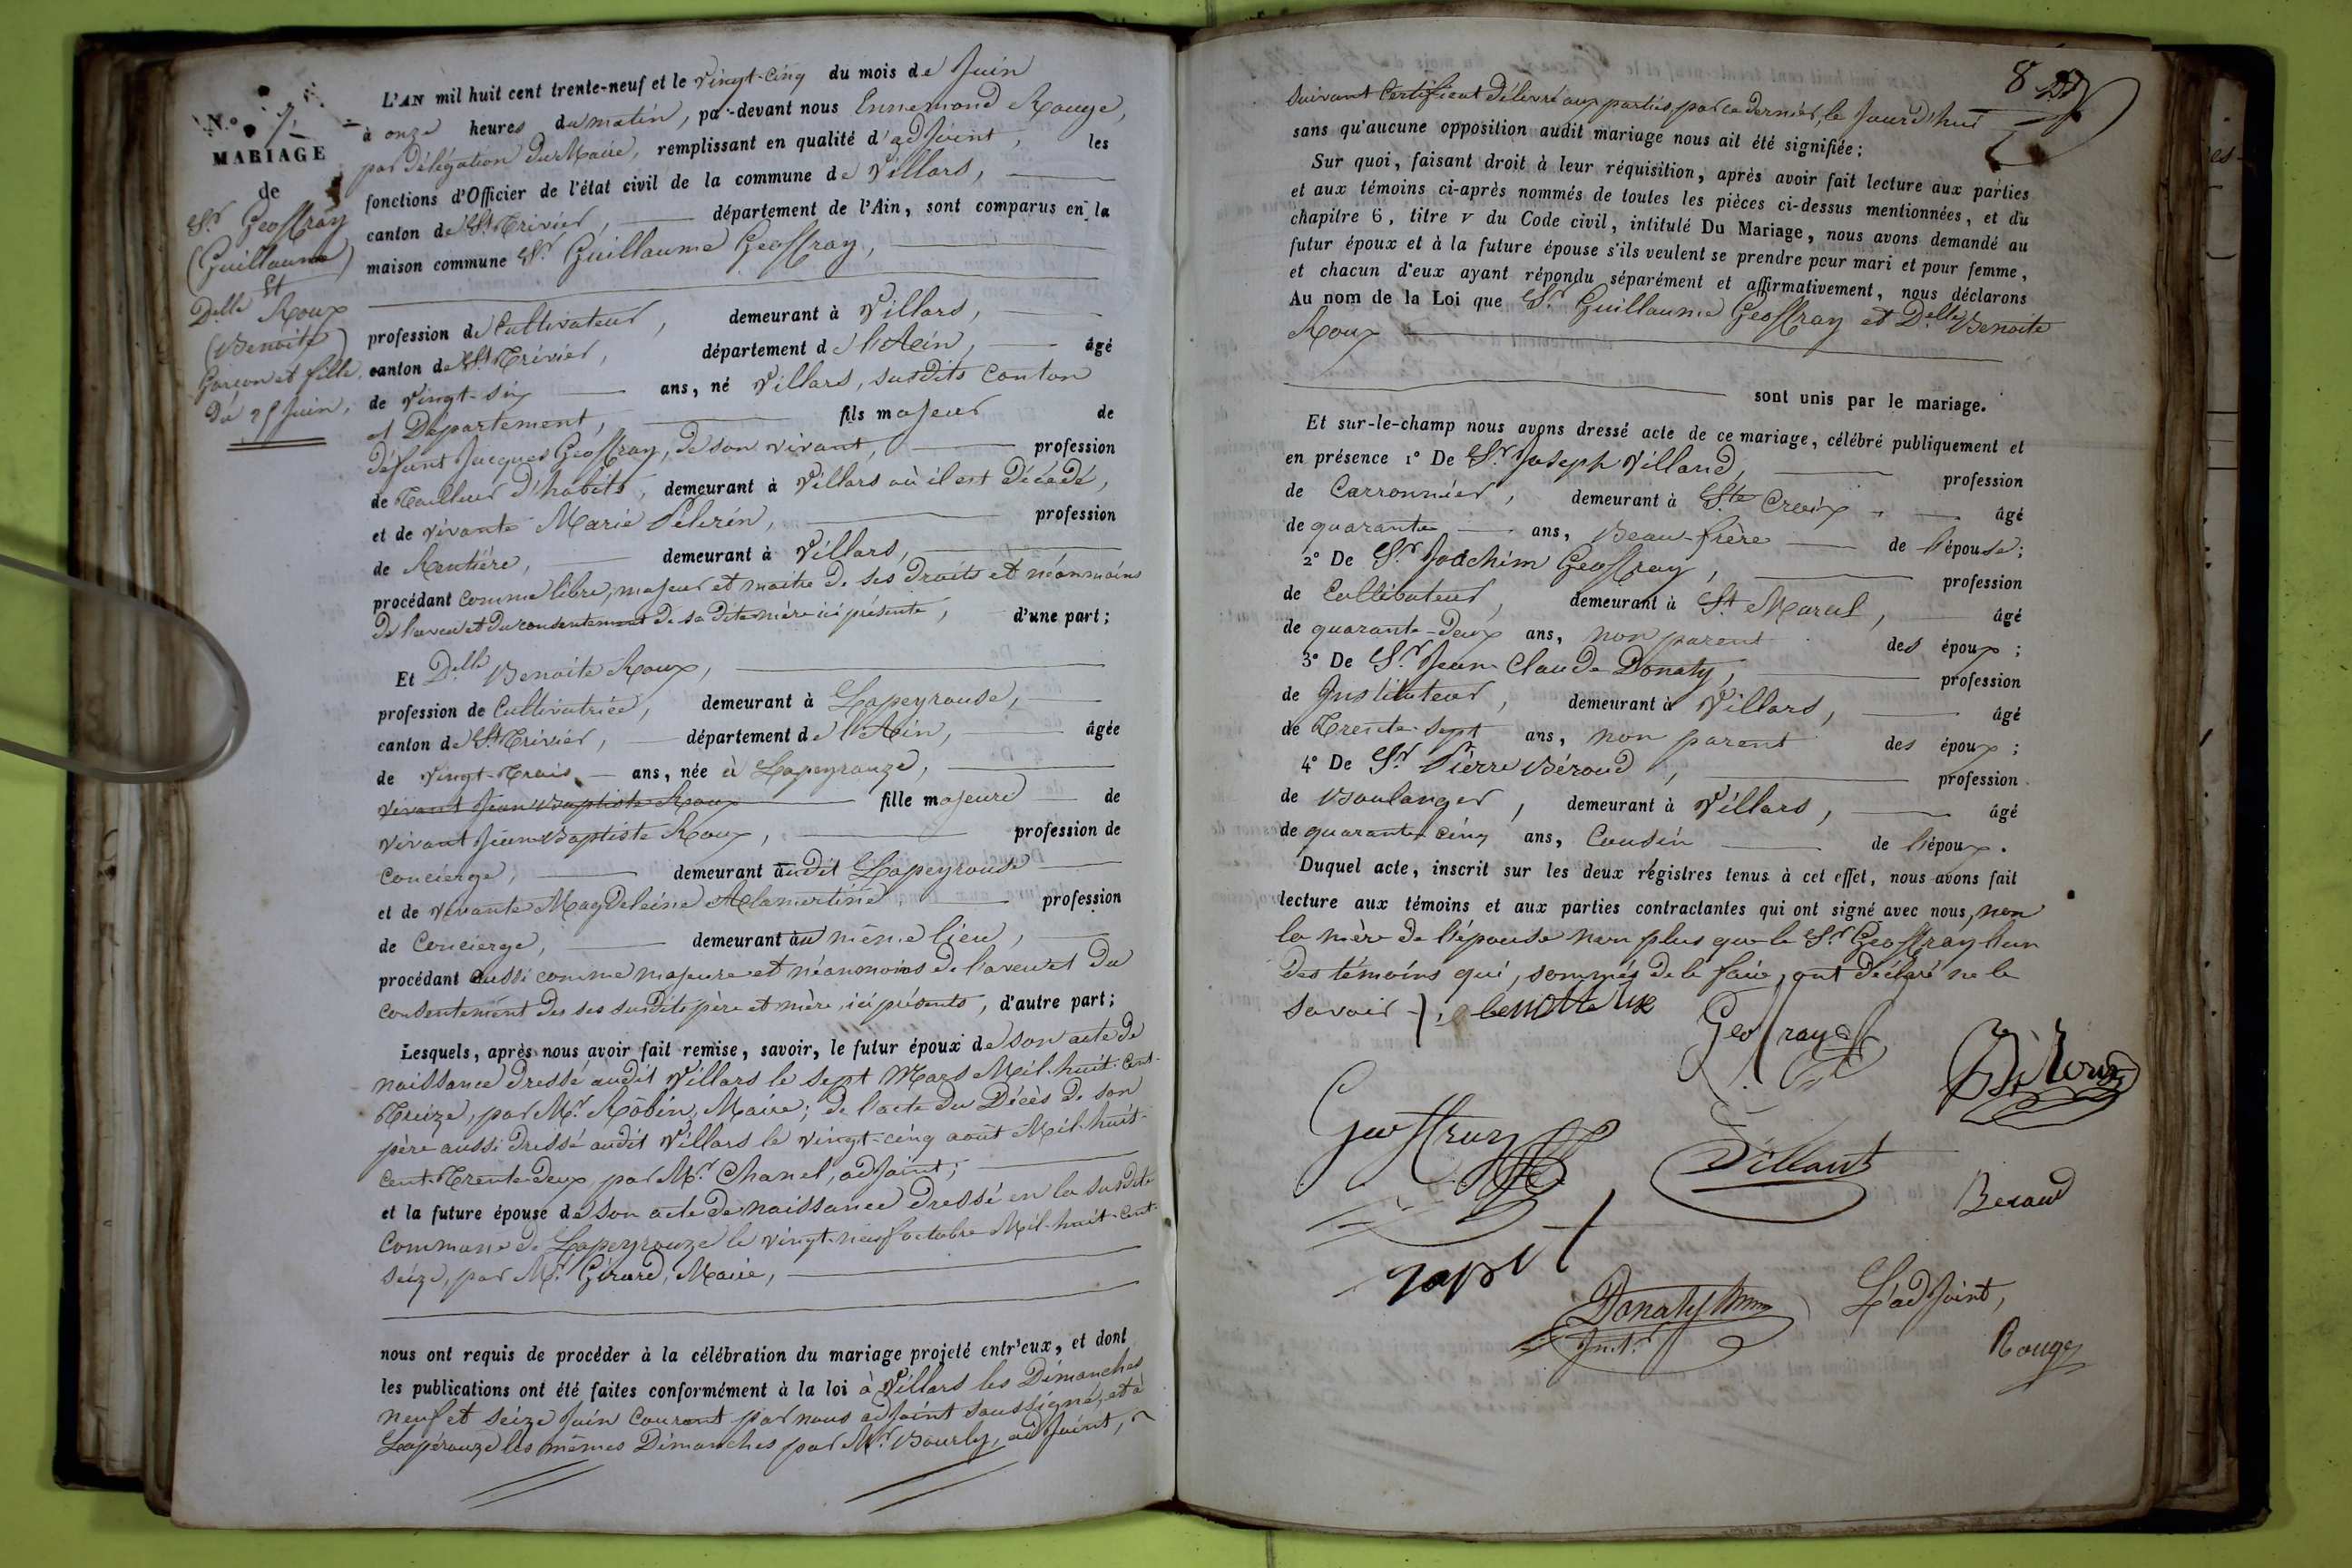 N.o 7.
MARIAGE
de
Sr. Geoffray
(Guillaume)
et
Delle Roux
(Benoite)
Garçon et fille.
Du 25 Juin.
L'AN mil huit cent trente-neuf et le vingt-cinq du mois de Juin
à onze heures du matin, par-devant nous Ennemond Rouge,
par délégation du Maire, remplissant en qualité d'adjoint, les
fonctions d'Officier de l'état civil de la commune de Villars,
canton de St. Trivier, département de l'Ain, sont comparus en la
maison commune Sr. Guillaume Geoffray,
profession de Cultivateur, demeurant à Villars,
canton de St. Trivier, département de l'Ain, âgé
de vingt-six ans, né Villars, susdits canton
et Département, fils majeur de
défunt Jacques Geoffray, de son vivant, profession
de Tailleur d'habits, demeurant à Villars où il est décédé,
et de vivante Marie Pélerin, profession
de Rentière, demeurant à Villars,
procédant comme libre, majeur et maitre de ses droits et néanmoins
de l'aveu et du consentement de sa dite mère ici présente, d'une part;
Et Delle Benoite Roux,
profession de Cultivatrice, demeurant à Lapeyrouse,
canton de St. Trivier, département de l'Ain, âgée
de vingt-trois ans, née à Lapeyrouze,
vivant Jean Baptiste Roux fille majeure de
vivant Jean Baptiste Roux, profession de
Concierge, demeurant audit Lapeyrouse
et de vivante Magdeleine Alamertine profession
de Concierge, demeurant au même lieu,
procédant aussi comme majeure et néanmoins de l'aveu et du
consentement des ses susdits père et mère, ici présents, d'autre part;
Lesquels, après nous avoir fait remise, savoir, le futur époux de son acte de
naissance dressé audit Villars le sept Mars Mil-huit-cent-
Treize, par Mr. Robin, Maire; de l'acte du Décès de son
père aussi dressé audit Villars le vingt-cinq août Mil-huit-
cent-Trente-deux, par Mr. Chanel, adjoint;
et la future épouse de son acte de naissance dressé en la susdite
Commune de Lapeyrouze le vingt-neuf octobre Mil-huit-cent-
seize, par Mr. Girard, Maire,
nous ont requis de procéder à la célébration du mariage projeté entr'eux, et dont
les publications ont été faites conformément à la loi à Villars les Dimanches
neuf et seize Juin Courant par nous adjoint soussigné, et à
Lapérouze les mêmes Dimanches par Mr. Bourly, adjoint,
8
suivant Certificat délivré aux parties par ce dernier, le Jourd'hui
sans qu'aucune opposition audit mariage nous ait été signifiée;
Sur quoi, faisant droit à leur réquisition, après avoir fait lecture aux parties
et aux témoins ci-après nommés de toutes les pièces ci-dessus mentionnées, et du
chapitre 6, titre v du Code civil, intitulé Du Mariage, nous avons demandé au
futur époux et à la future épouse s'ils veulent se prendre pour mari et pour femme,
et chacun d'eux ayant répondu séparément et affirmativement, nous déclarons
Au nom de la Loi que Sr. Guillaume Geoffray et Delle Benoite
Roux
sont unis par le mariage.
Et sur-le-champ nous avons dressé acte de ce mariage, célébré publiquement et
en présence 1º De Sr. Joseph Villand, profession
de Carronnier, demeurant à Ste Croix âgé
de quarante ans, Beau-frère de l'épouse;
2º De Sr. Joachim Geoffray, profession
de Cultivateur, demeurant à St. Marcel, âgé
de quarante-deux ans, non parent des époux;
3º De Sr. Jean Claude Donaty, profession
de Instituteur, demeurant à Villars, âgé
de Trente-sept ans, non parent des époux;
4º De Sr. Pierre Béroud, profession
de Boulanger, demeurant à Villars, âgé
de quarante cinq ans, Cousin de l'époux.
Duquel acte, inscrit sur les deux régistres tenus à cet effet, nous avons fait
lecture aux témoins et aux parties contractantes qui ont signé avec nous, non
la mère de l'épouse non plus que le Sr. Geoffray l'un
des témoins qui, sommés de le faire, ont déclaré ne le
savoir
Geoffray
Geoffray
Villant
Beraud
Donaty
Instr.
L'adjoint,
Rouge